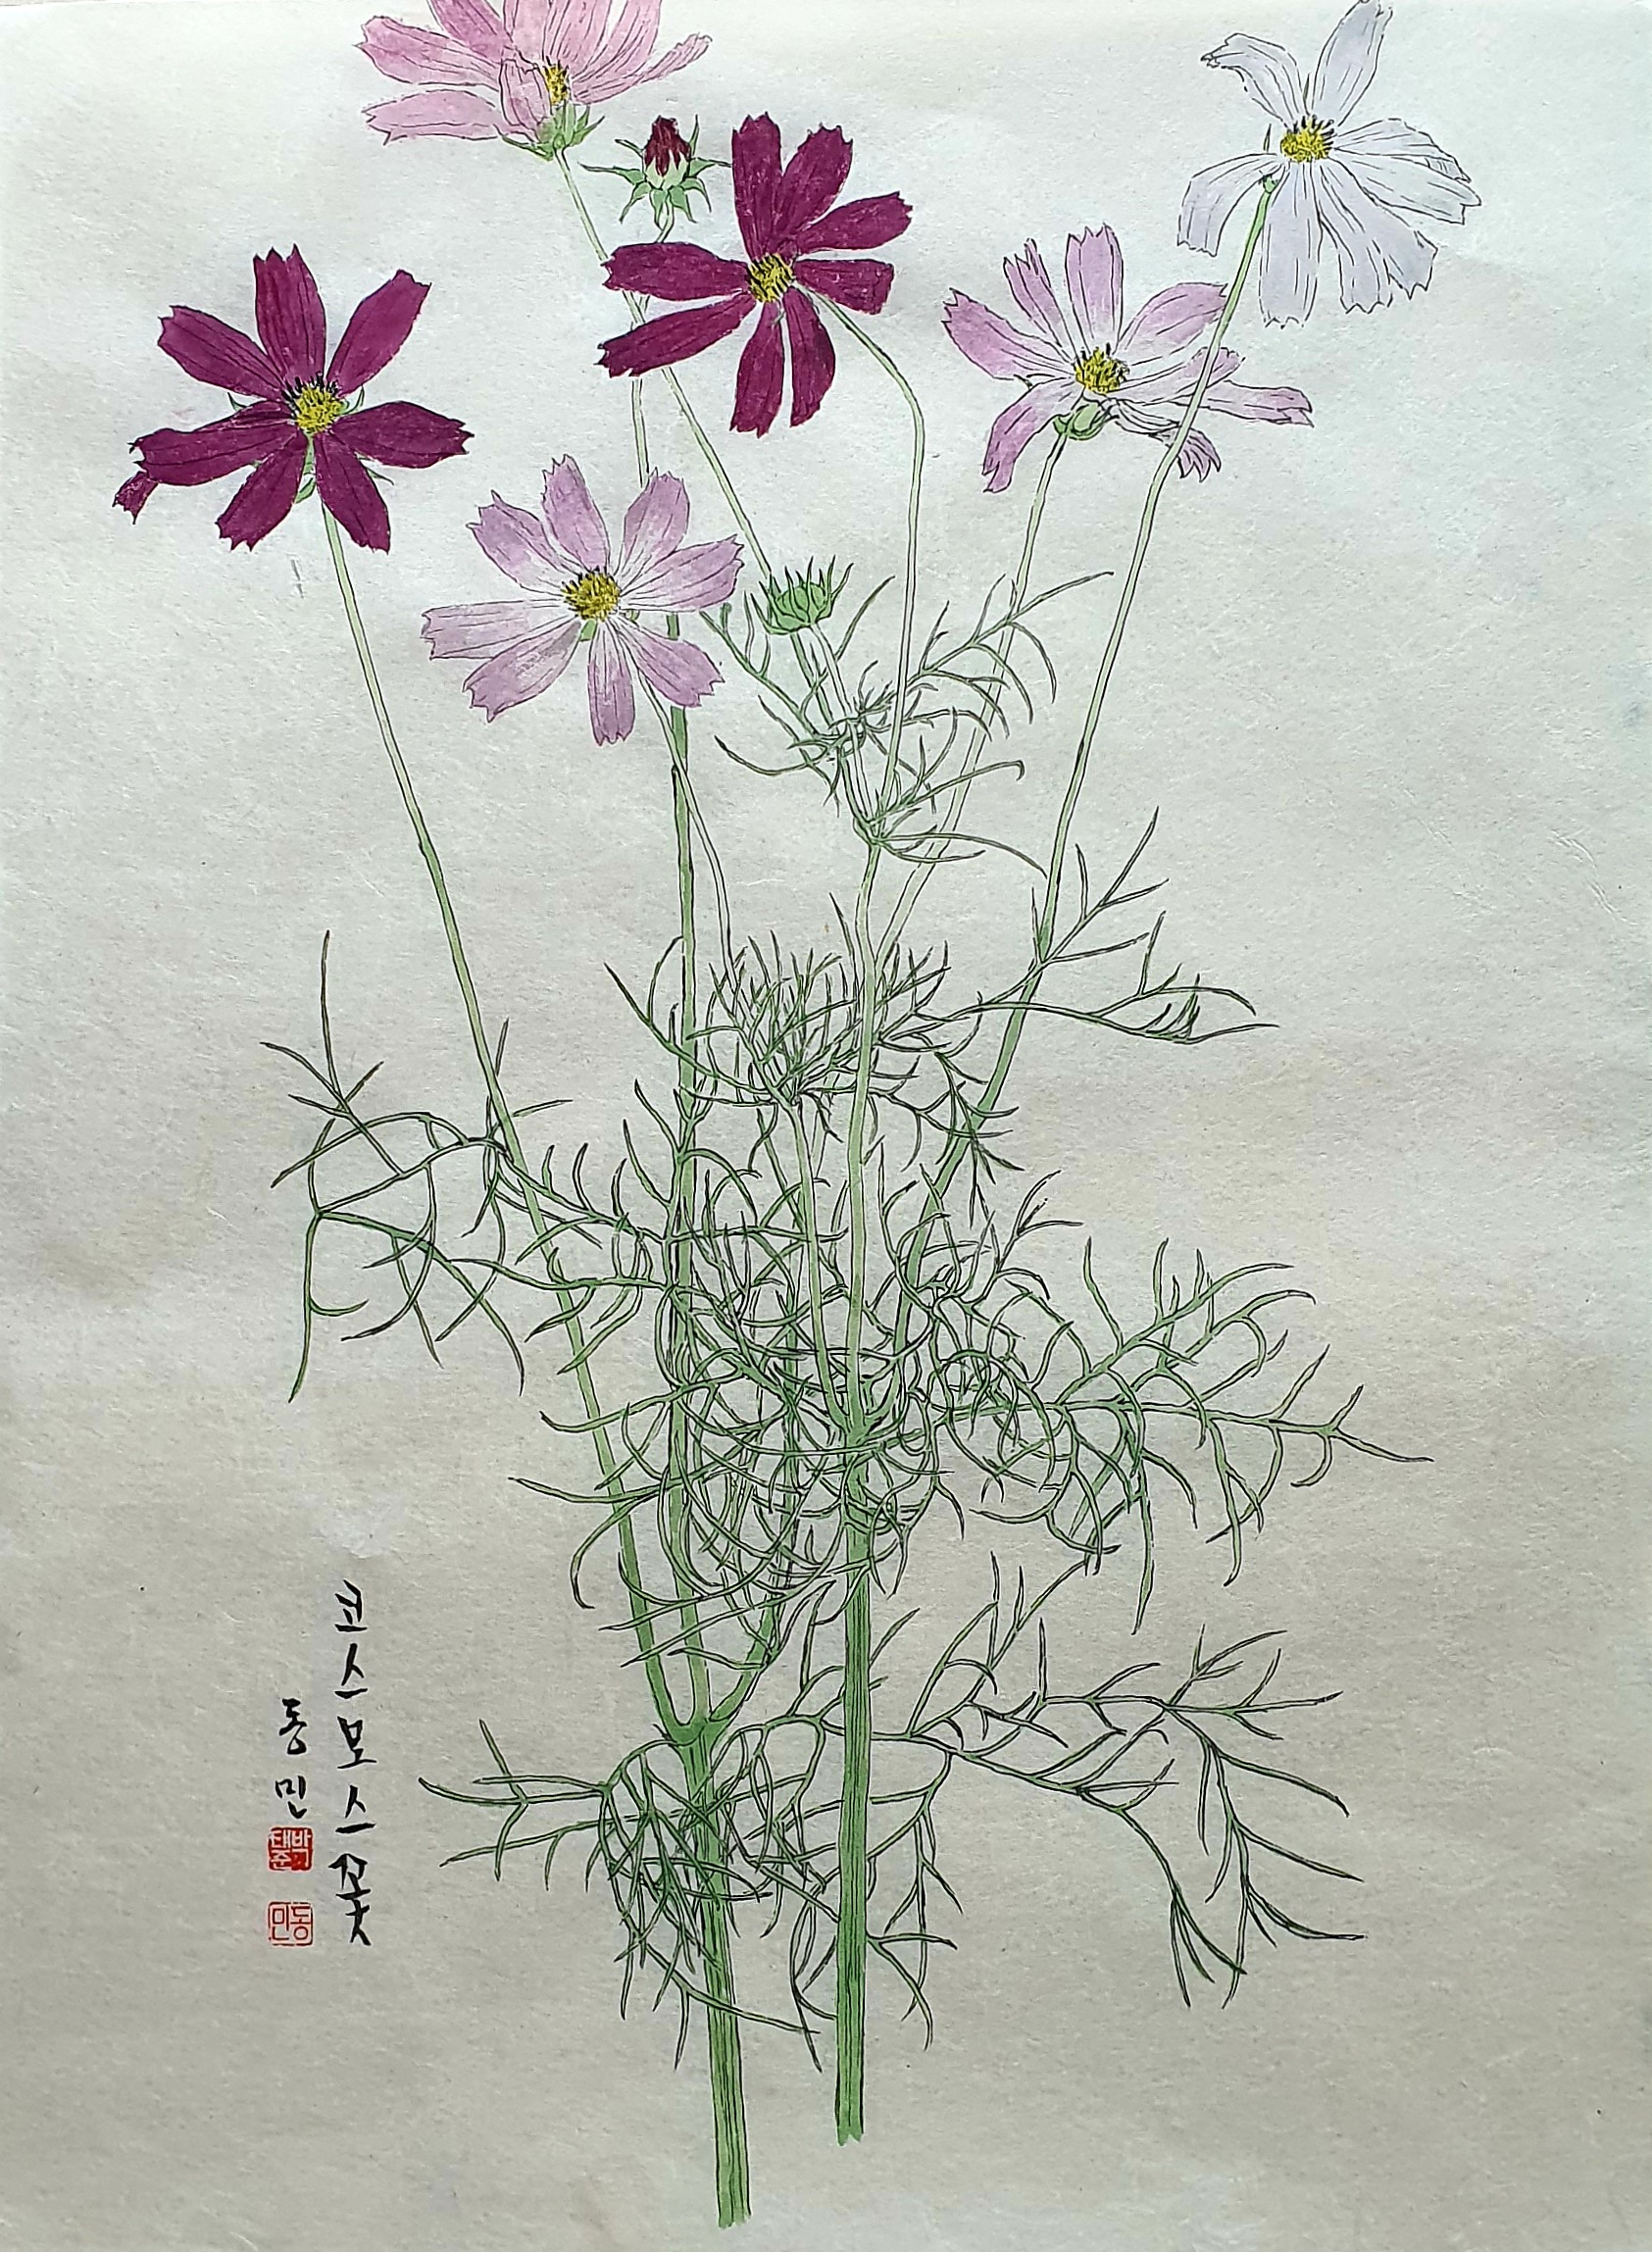 코스모스꽃
동민
박태준
동민